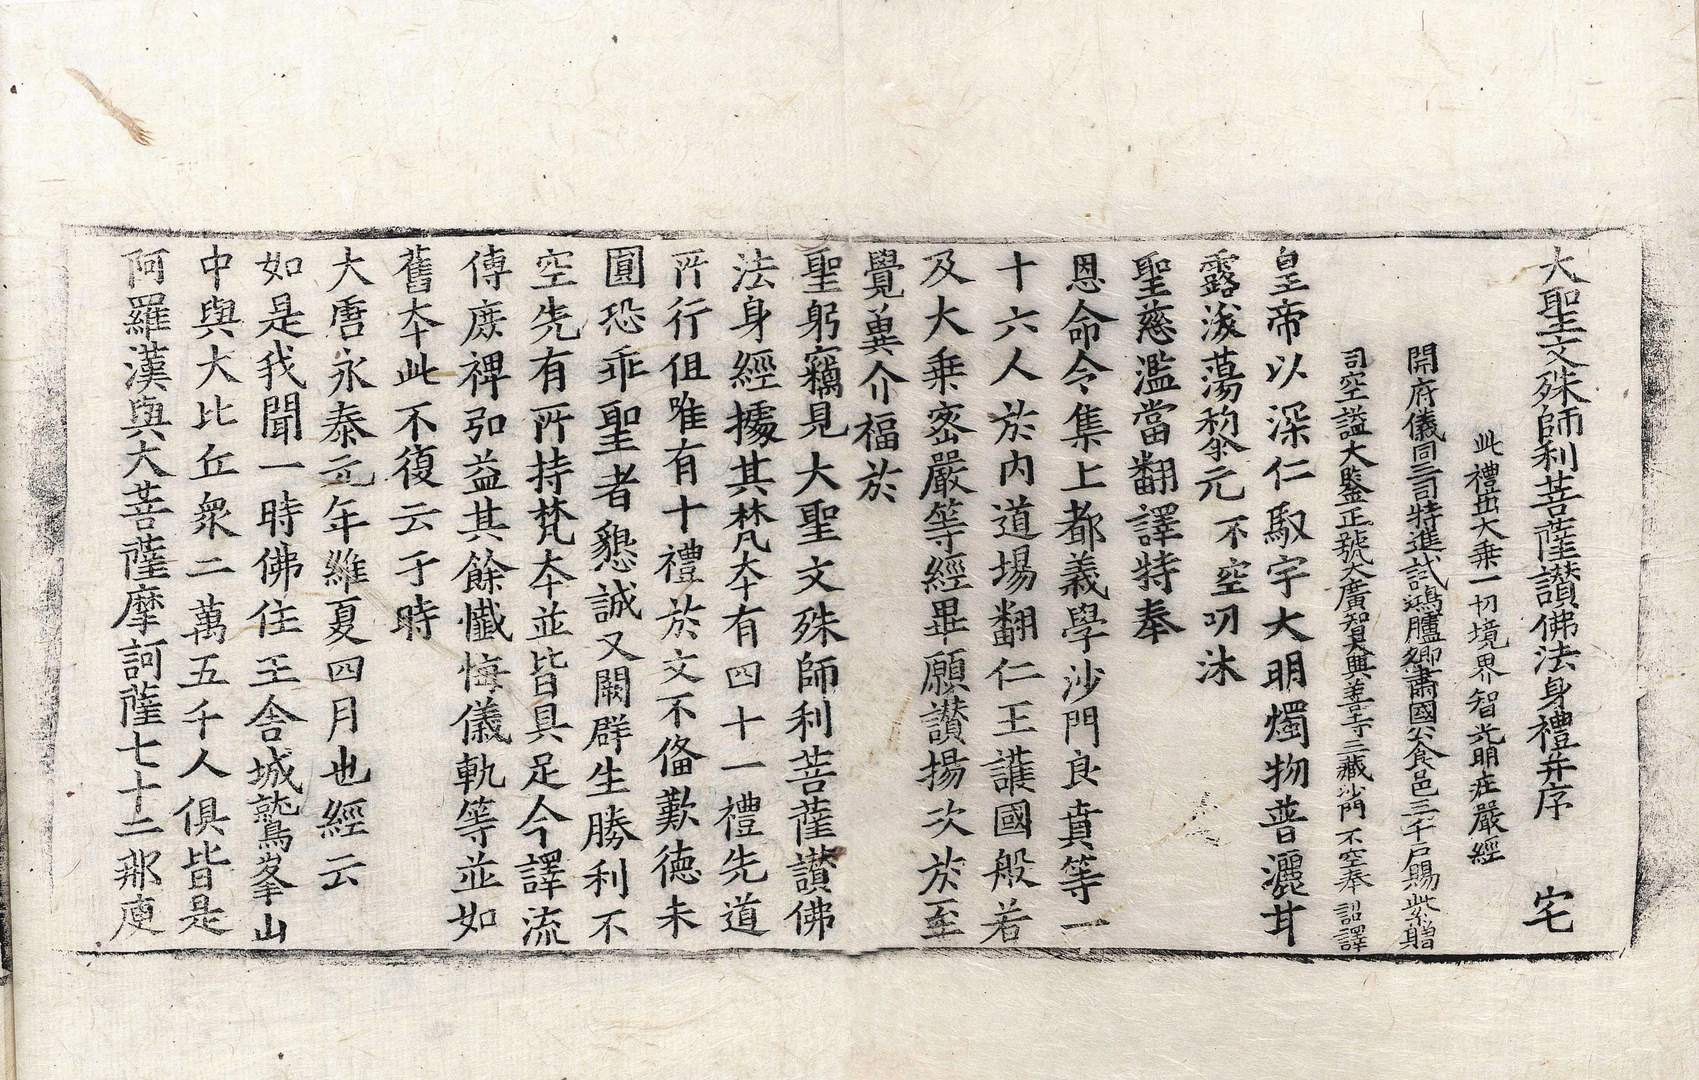 大聖文殊師利菩薩讃佛法身禮并序 宅
此禮出大乗一切境界智光明荘嚴經
開府儀同三司特進試鴻臚卿肅國公食邑三千户賜紫贈
司空謚大鑒正號大廣智大興善寺三藏沙門不空奉 詔譯
皇帝以深仁馭宇大明燭物普灑甘
露滌蕩黎元不空叨沐
聖慈濫當翻譯特奉
恩命令集上都義學沙門良賁等一
十六人於内道場翻仁王護國般若
及大乗密嚴等經畢願讃揚次於至
覺兾介福於
聖躬竊見大聖文殊師利菩薩讃佛
法身經據其梵夲有四十一禮先道
所行但唯有十禮於文不俻歎德未
圓恐乖聖者懇誠又闕群生勝利不
空先有所持梵夲並皆具足今譯流
傳庻禆弘益其餘懺悔儀軌等並如
舊夲此不復云于時
大唐永泰元年維夏四月也經云
如是我聞一時佛住王舍城鷲峯山
中與大比丘衆二萬五千人俱皆是
阿羅漢與大菩薩摩訶薩七十二那庾